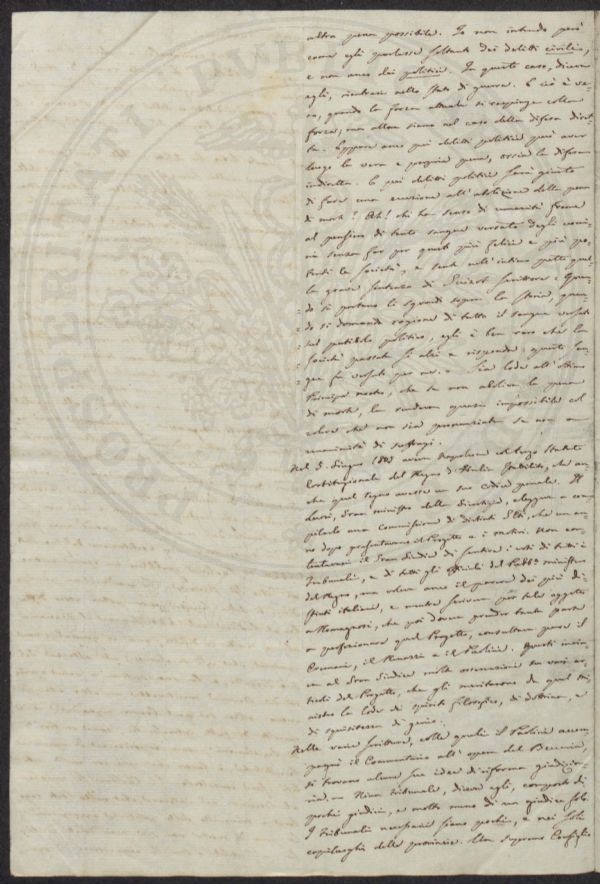 altra pena possibile. Io non intendo però
come egli parlasse soltanto dei delitti civili,
e non anco dei politici. In questo caso, diceva
egli, rientrasi nello stato di guerra. E ciò è ve-
ro, quando la forza attuale si respinge colla
forza, ma allora siamo nel caso della difesa diret-
ta. Eppure anco pei delitti politici può aver
luogo la vera e propria pena, ossia la difesa
indiretta. E pei delitti politici sarà giusto
di fare una eccezione all'abolizione della pena
di morte? Oh! chi ha senso di umanità freme
al pensiero di tanto sangue versato dagli uomi-
ni senza far per questo più felice e più po-
tente la società, e sente nell'intimo petto quel-
la grave sentenza di Guizot scrittore: Quan-
do si portano li sguardi sopra la storia, quan-
do si domanda ragione di tutto il sangue versato
sul patibolo politico, egli è ben raro che la
società passata si alzi e risponda, questo san-
gue fu versato per me. Sia lode all'ottimo
Principe nostro, che se non abolìa la pena
di morte, la rendeva quasi impossibile col
volere che non sia pronunziata se non a
unanimità di suffragi.
Nel 5 Giugno 1805 aveva Napoleone col terzo Statuto
Costituzionale del Regno d'Italia stabilito, che an-
che quel regno avesse un suo codice penale. Il
Luosi, Gran ministro della Giustizia, eleggeva a com-
pilarlo una Commissione di distinti
no dopo presentavane il Progetto e i motivi. Non con-
tentavasi il Gran Giudice di sentire i voti di tutti i
Tribunali, e di tutti gli officiali del Pubb.º ministero
del Regno, ma voleva anco il parere dei più di-
stinti italiani, e mentre scriveva per tale oggetto
a Romagnosi, che poi doveva prender tanta parte
a perfezionare quel Progetto, consultava pure il
Cremani, il Renazzi e il Paolini. Questi invia-
va al Gran Giudice molte osservazioni su varj ar-
ticoli del Progetto, che gli meritarono da quel mi-
nistro la lode di spirito filosofico, di dottrina, e
di squisitezza di genio.
Nelle varie scritture, colle quali il Paolini accom-
pagnò il Commentario all'opera del Beccaria,
si trovano alcune sue idee di riforma giudizia-
ria. Niun tribunale, diceva egli, composto di
pochi giudici, e molto meno di un giudice solo.
I tribunali necessarj siano pochi, e nei soli
capiluoghi delle provincie. Un supremo Consiglio